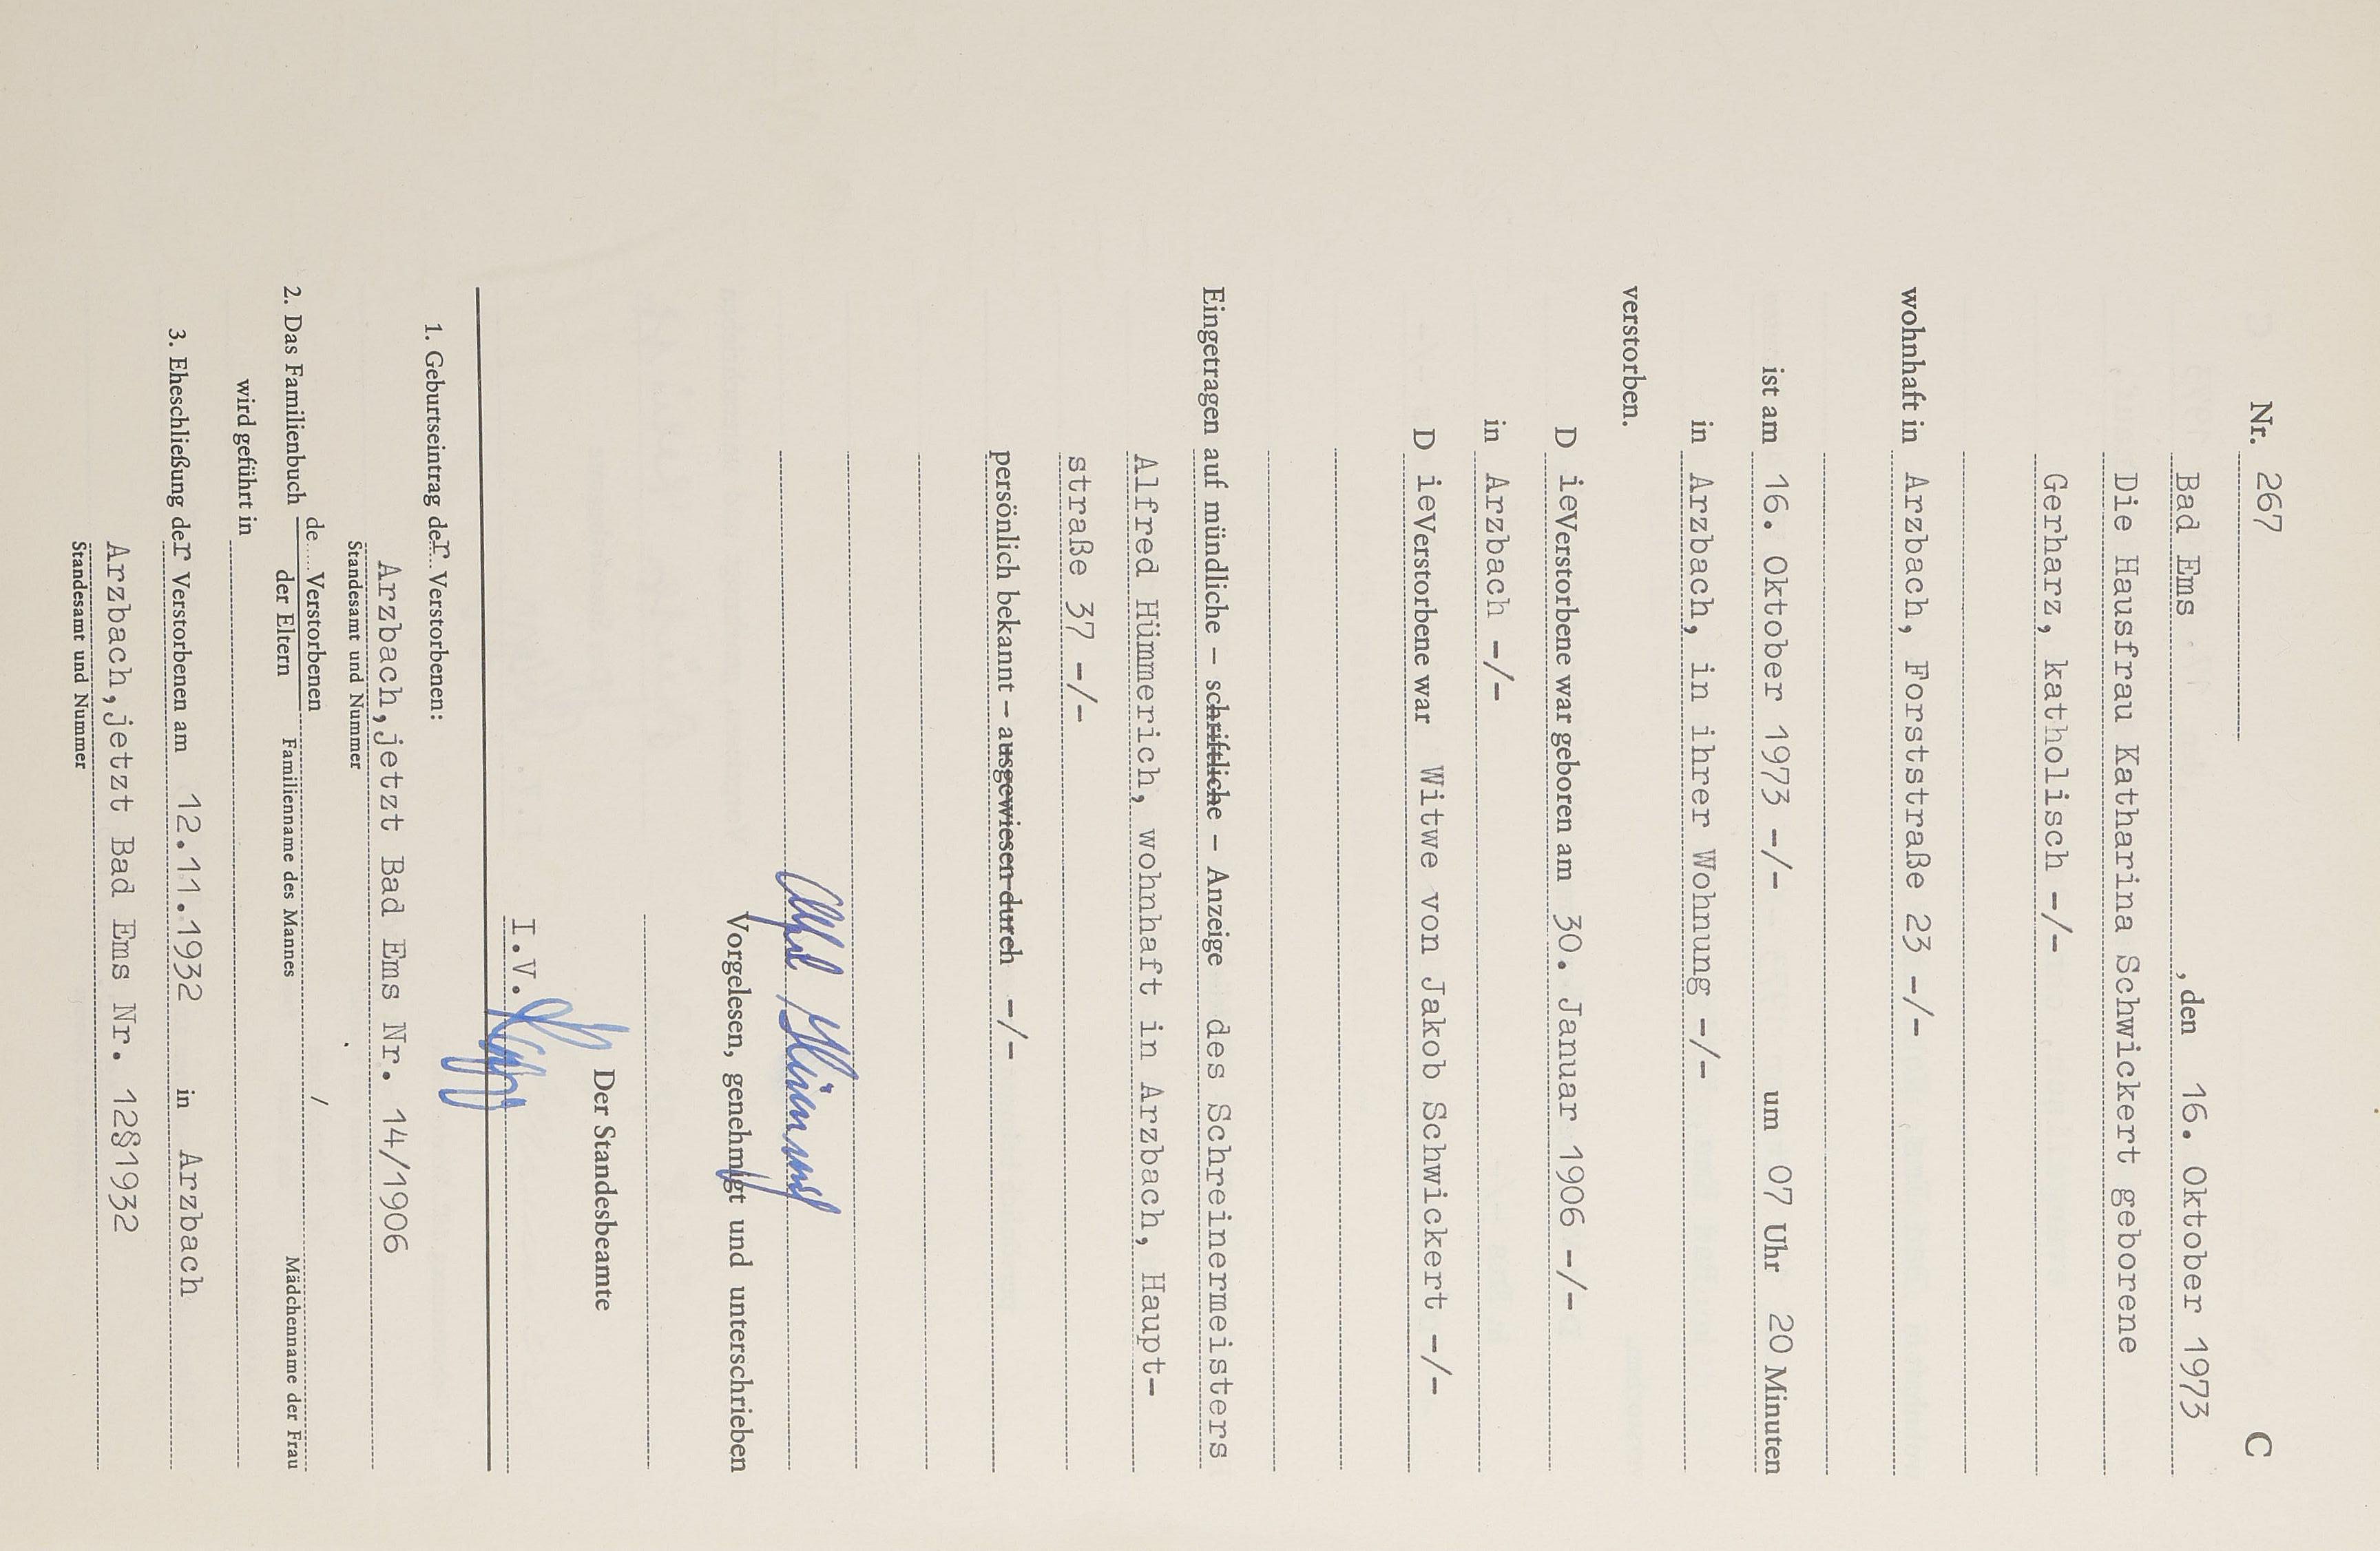 Nr. 267 C
Bad Ems , den 16. Oktober 1973
Die Hausfrau Katharina Schwickert geborene
Gerharz, katholisch -/-
wohnhaft in Arzbach, Forststraße 23 -/-
ist am 16. Oktober 1973 -/- um 07 Uhr 20 Minuten
in Arzbach, in ihrer Wohnung -/-
verstorben.
D ieVerstorbene war geboren am 30. Januar 1906 -/-
in Arzbach -/-
D ieVerstorbene war Witwe von Jakob Schwickert -/-
Eingetragen auf mündliche – schriftliche – Anzeige des Schreinermeisters
Alfred Hümmerich, wohnhaft in Arzbach, Haupt-
straße 37 -/-
persönlich bekannt – ausgewiesen durch -/-
Vorgelesen, genehmigt und unterschrieben
Der Standesbeamte
I.V.
1. Geburtseintrag der Verstorbenen:
Arzbach,jetzt Bad Ems Nr. 14/1906
Standesamt und Nummer
de.... Verstorbenen /
2. Das Familienbuch
der Eltern Familienname des Mannes Mädchenname der Frau
wird geführt in
3. Eheschließung der Verstorbenen am 12.11.1932 in Arzbach
Arzbach,jetzt Bad Ems Nr. 12§1932
Standesamt und Nummer